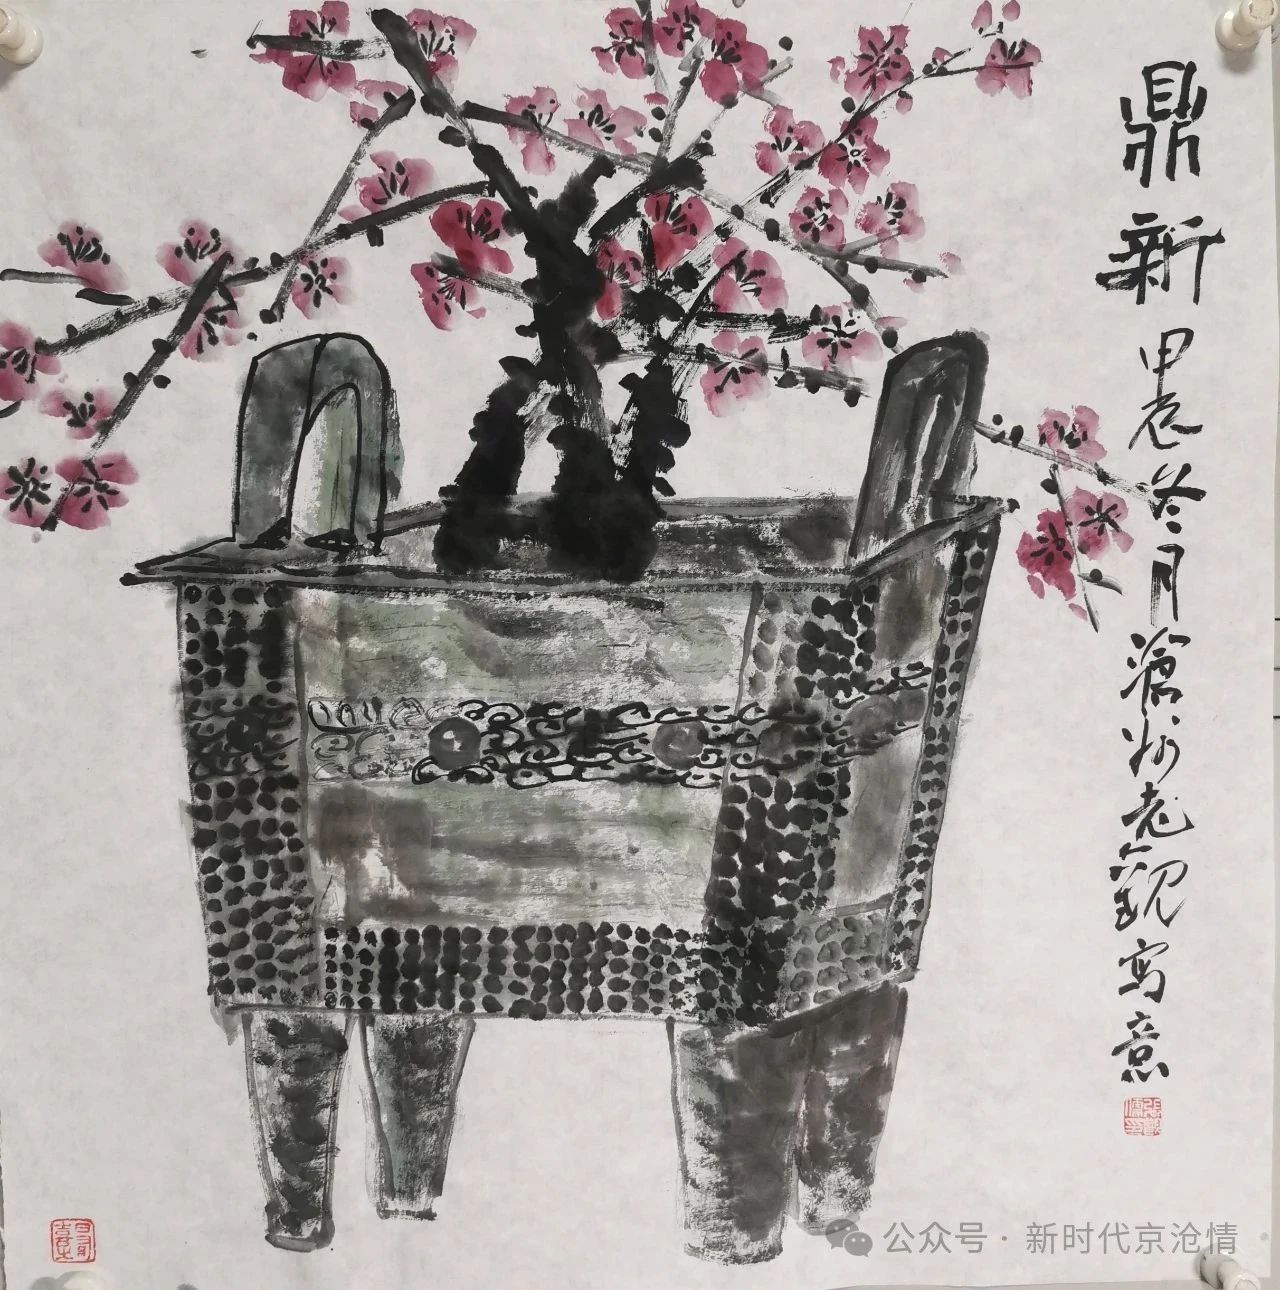 鼎新
甲辰冬月滄州老觀写意
公众号·新时代京沧情